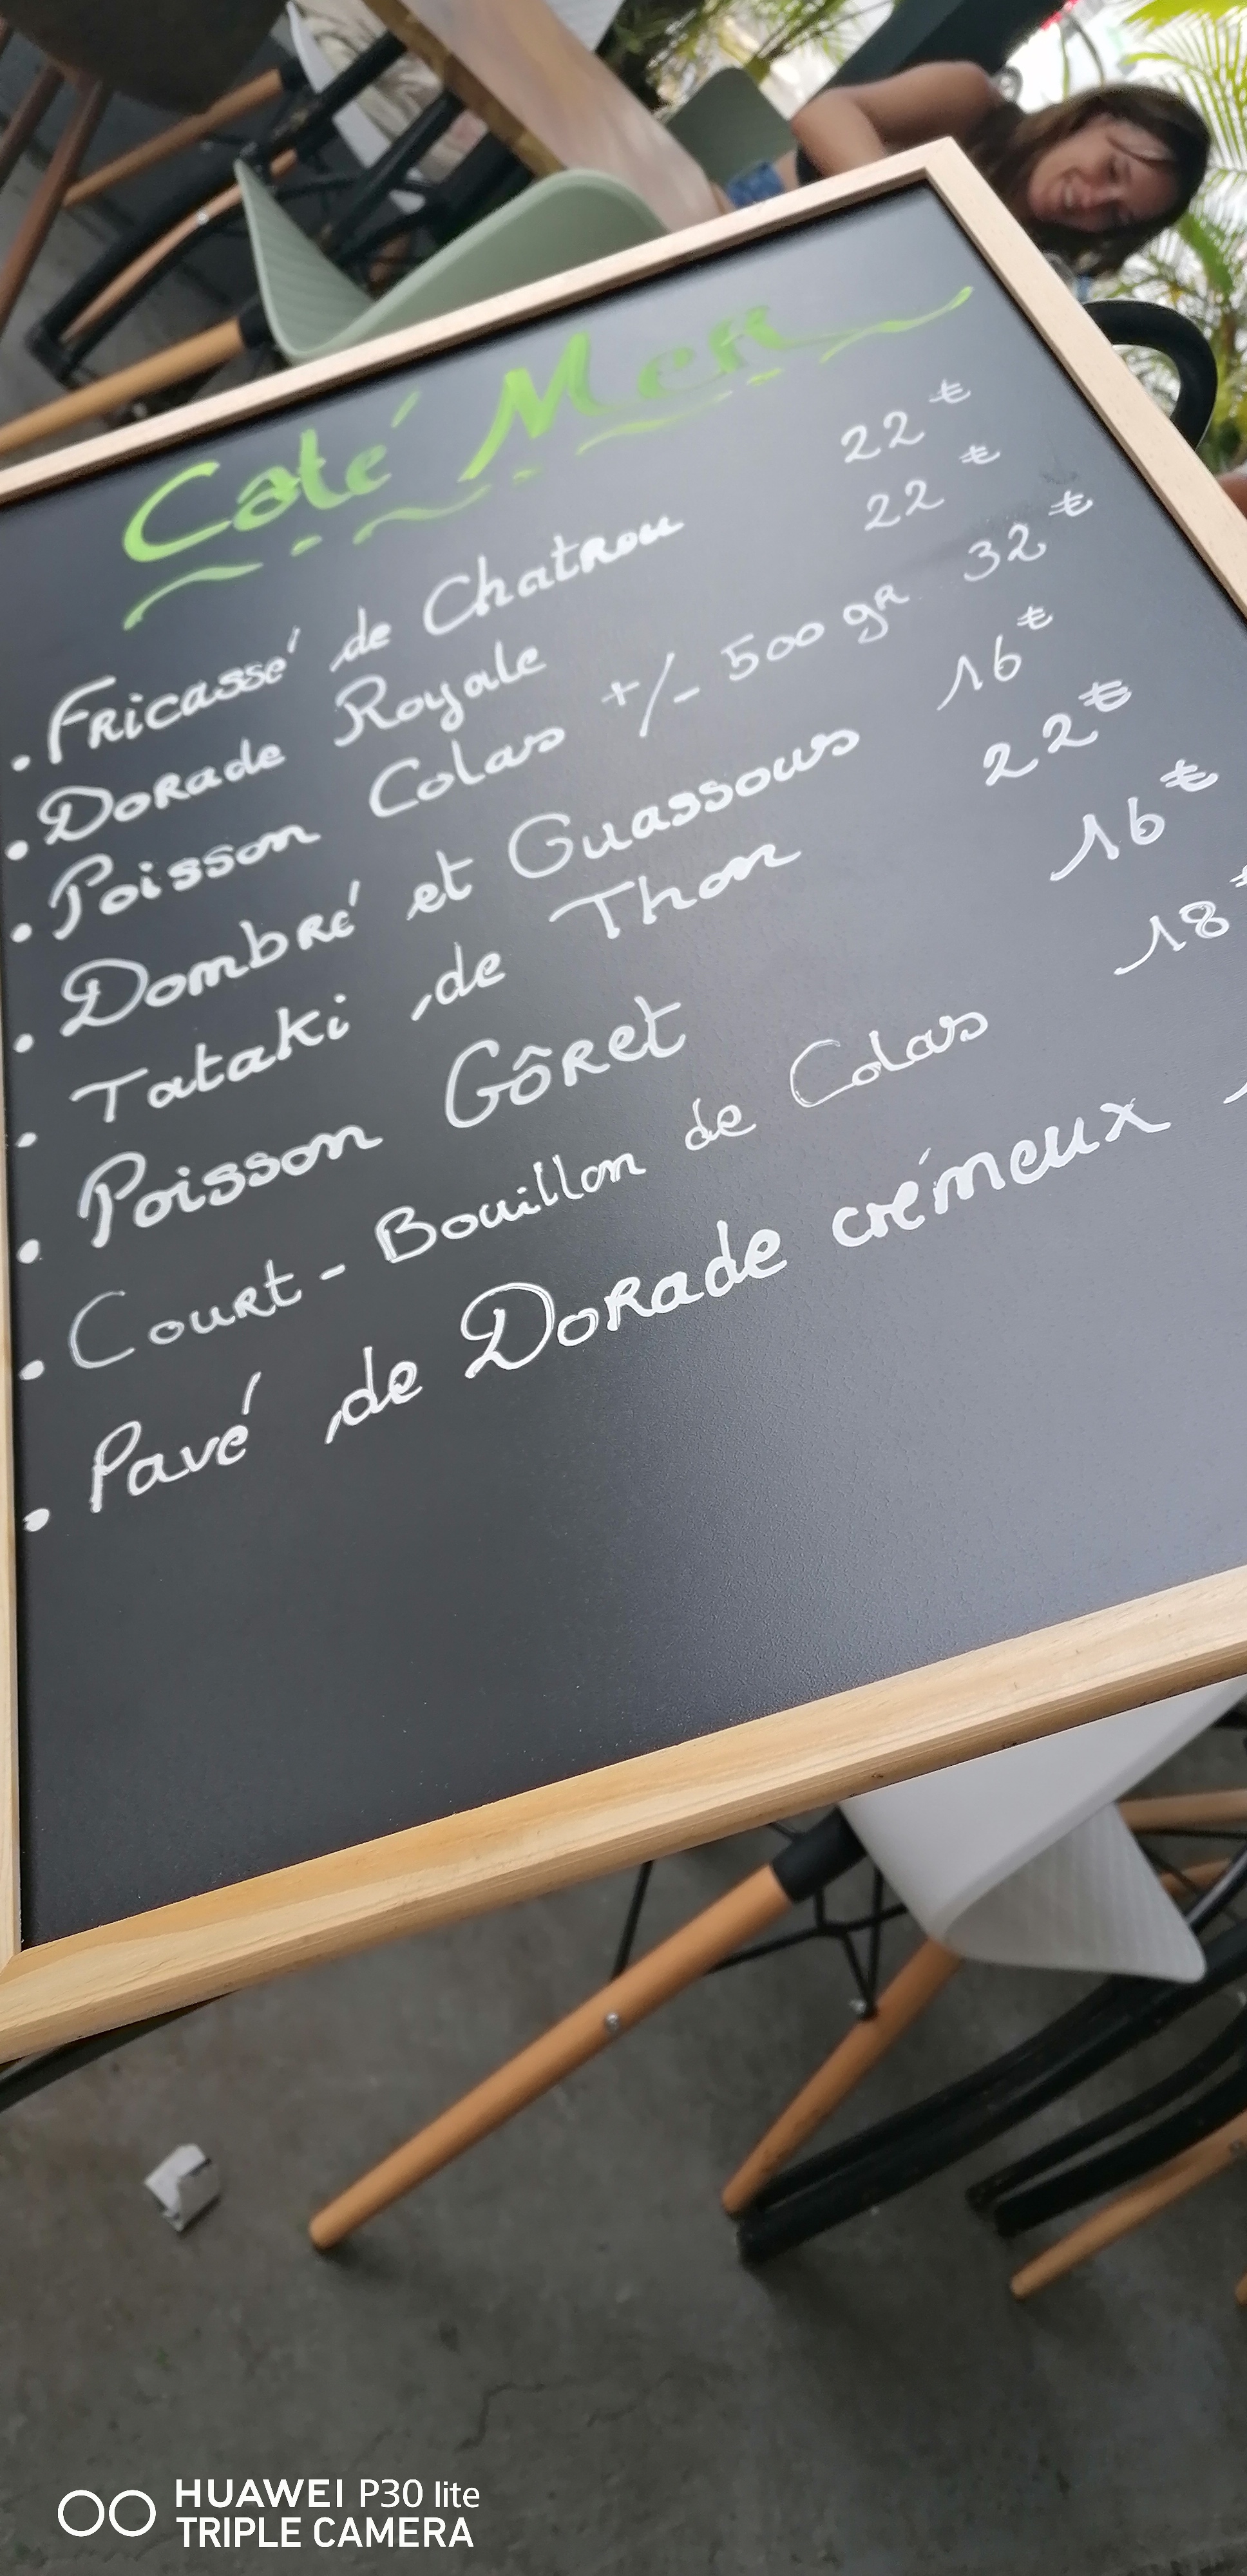 Côté Mer
• Fricassé de Chatrou 22 €
• Dorade Royale 22 €
• Poisson Colas +/- 500 gr 32 €
• Dombré et Guassous 16 €
• Tataki de Thon 22 €
• Poisson Gôret 16 €
• Court-Bouillon de Colas 18 €
• Pavé de Dorade crémeux
HUAWEI P30 lite
TRIPLE CAMERA